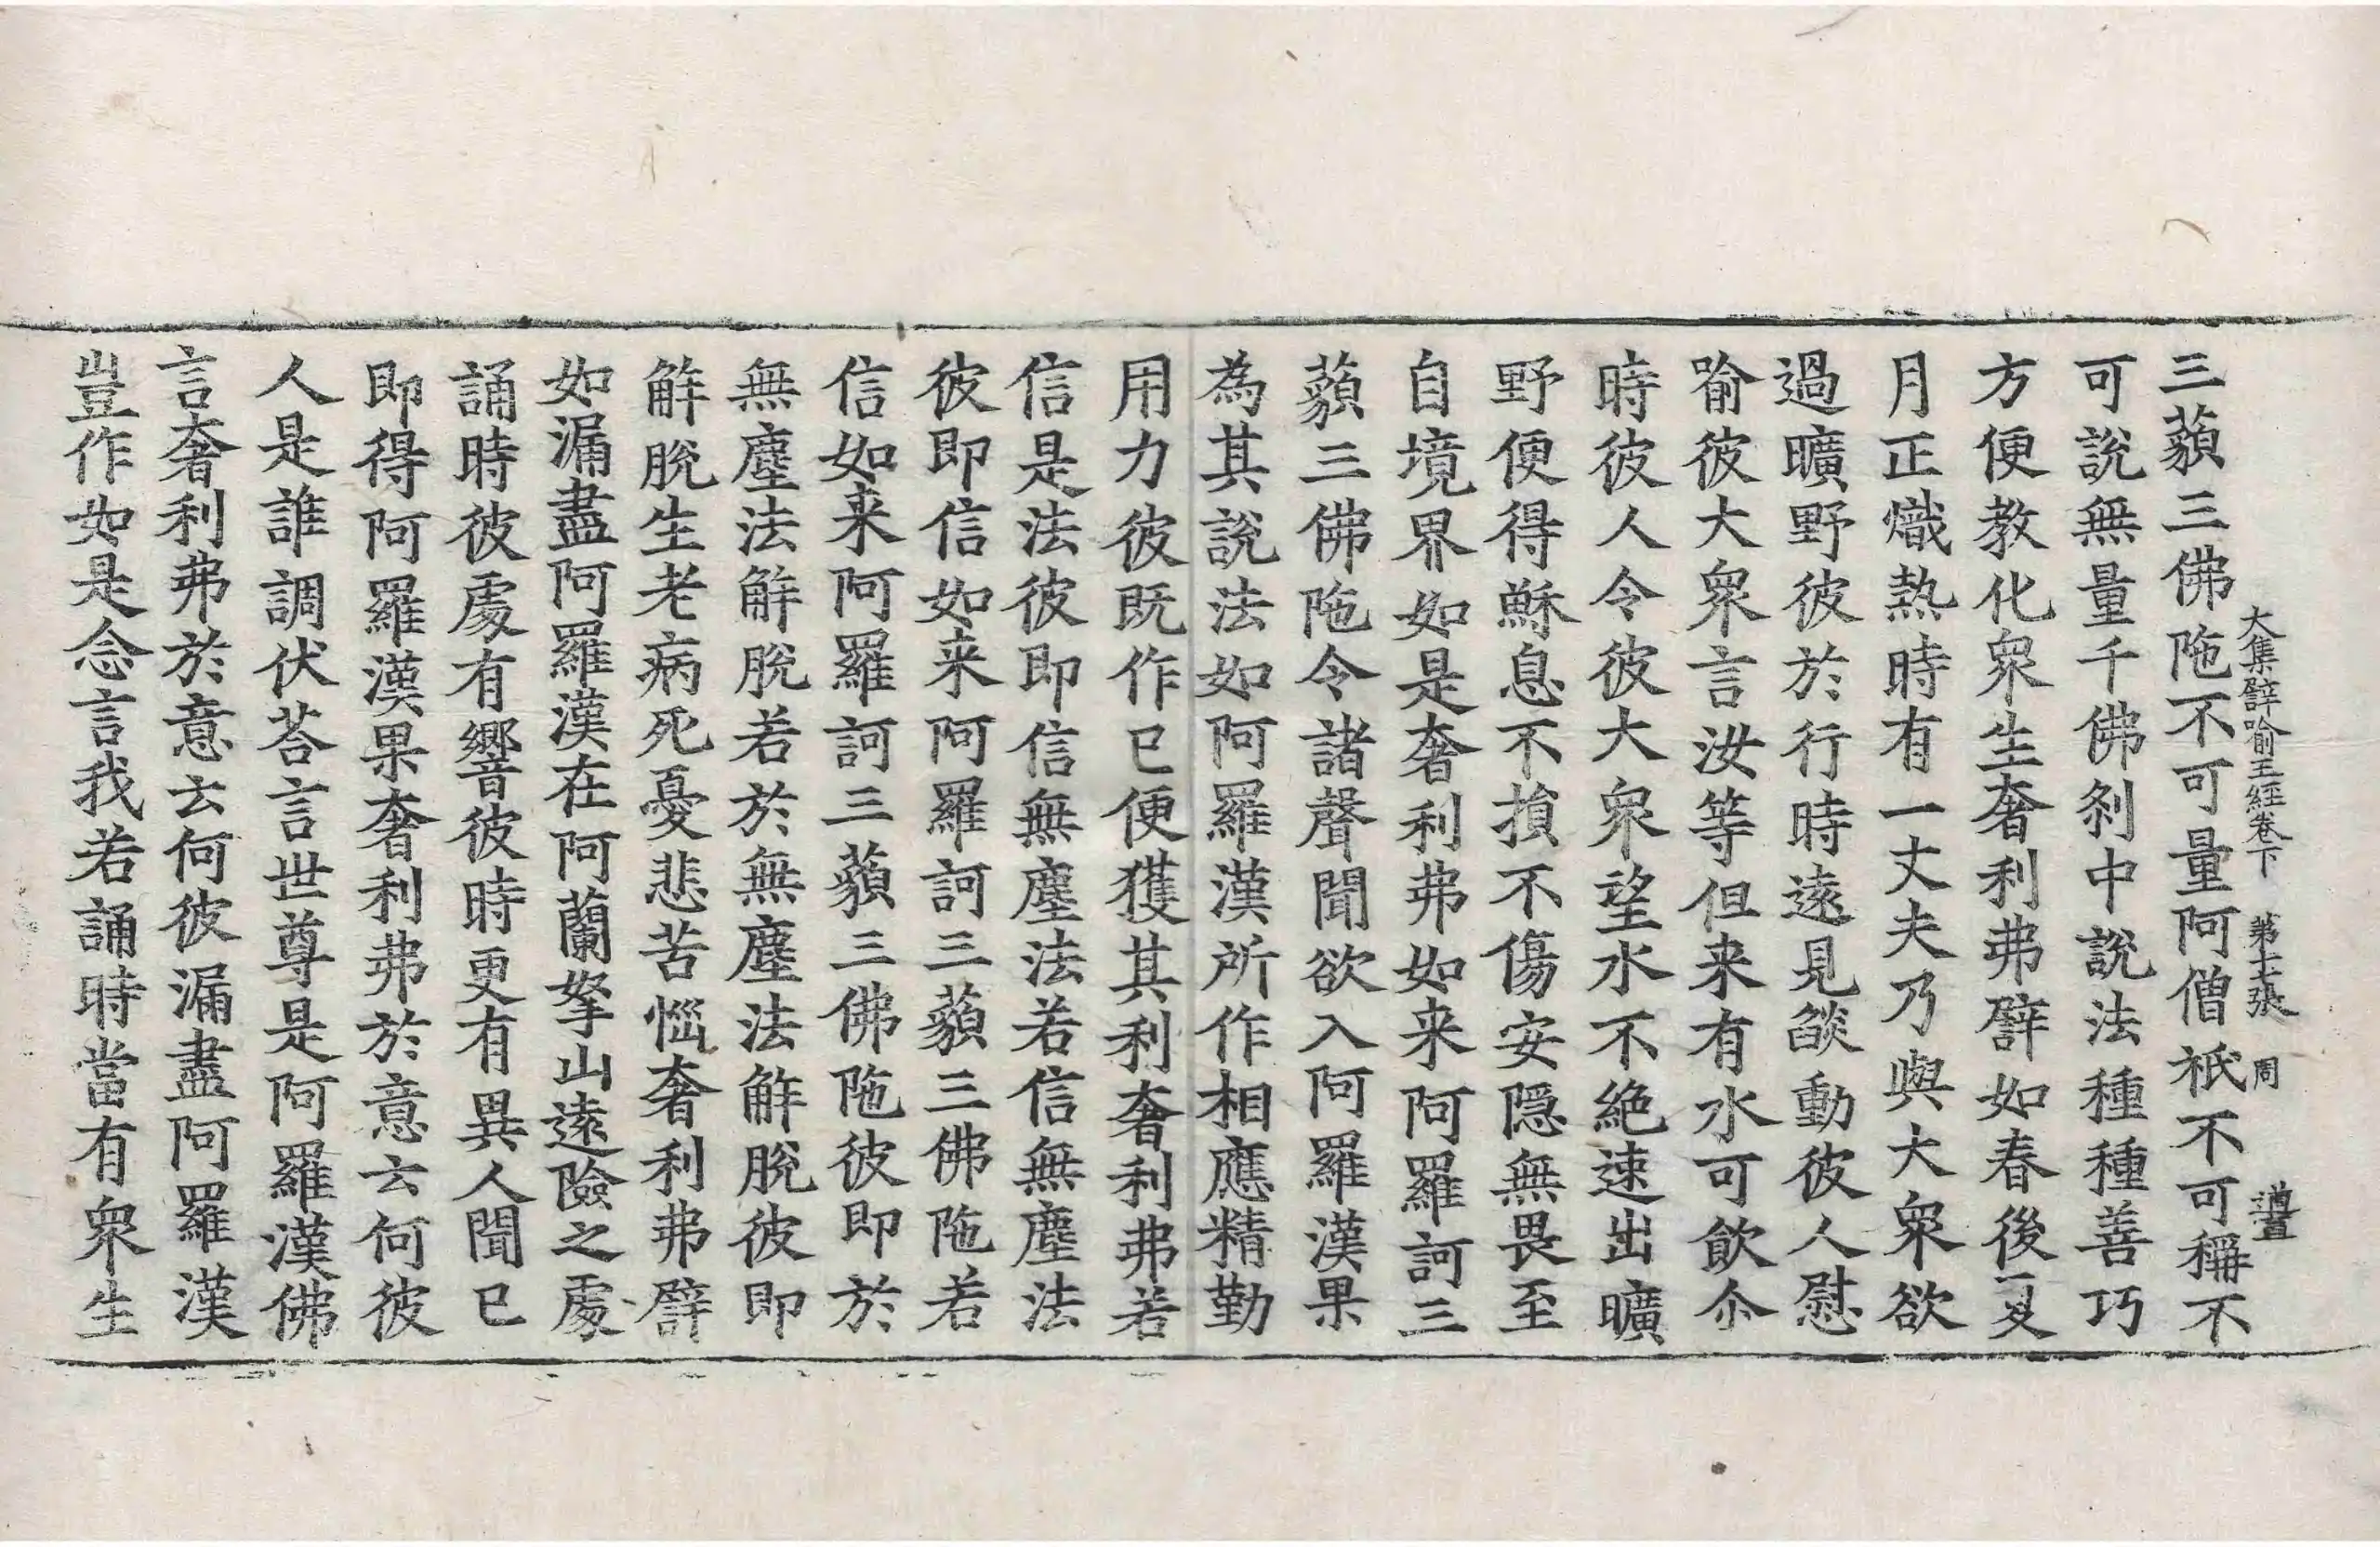 大集譬喻王經卷下 第十七張 周
三藐三佛陁不可量阿僧祇不可稱不
可說無量千佛剎中說法種種善巧
方便教化衆生奢利弗譬如春後一
月正熾熱時有一丈夫乃與大衆欲
過曠野彼於行時遠見燄動彼人慰
喻彼大衆言汝等但来有水可飲尒
時彼人令彼大衆望水不絕速出曠
野便得穌息不損不傷安隱無畏至
自境界如是奢利弗如来阿羅訶三
藐三佛陁令諸聲聞欲入阿羅漢果
為其說法如阿羅漢所作相應精勤
用力彼既作已便獲其利奢利弗若
信是法彼即信無塵法若信無塵法
彼即信如来阿羅訶三藐三佛陁若
信如来阿羅訶三藐三佛陁彼即於
無塵法解脫若於無塵法解脫彼即
解脫生老病死憂悲苦惱奢利弗譬
如漏盡阿羅漢在阿蘭拏山遠險之處
誦時彼處有響彼時更有異人聞已
即得阿羅漢果奢利弗於意云何彼
人是誰調伏荅言世尊是阿羅漢佛
言奢利弗於意云何彼漏盡阿羅漢
豈作如是念言我若誦時當有衆生